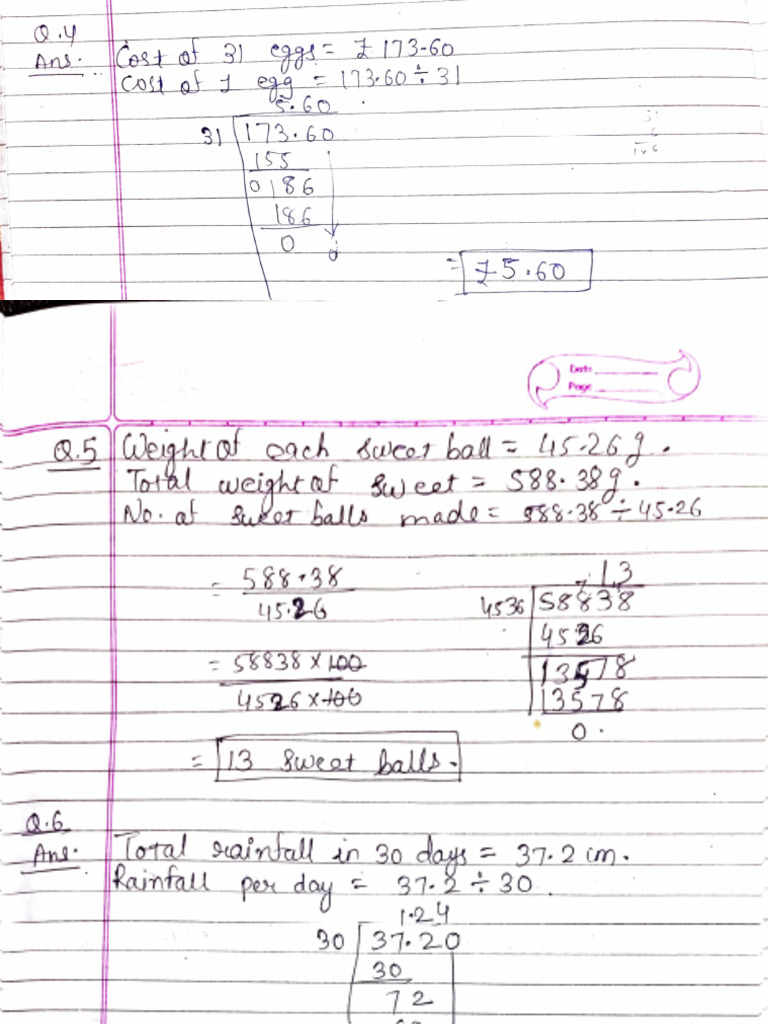 Q.4
Ans. Cost of 31 eggs = ₹173.60
Cost of 1 egg = 173.60 ÷ 31
5.60
31 173.60
155
0186
186
0 0
= ₹5.60
Date
Page
Q.5 Weight of each sweet ball = 45.26g.
Total weight of sweet = 588.38g.
No. of sweet balls made = 588.38 ÷ 45.26
= 588.38
45.26
13
4536 58838
4526
13578
13578
0.
= 58838 × 100
4526 × 100
= 13 sweet balls.
Q.6
Ans. Total rainfall in 30 days = 37.2 cm.
Rainfall per day = 37.2 ÷ 30
1.24
30 37.20
30
72